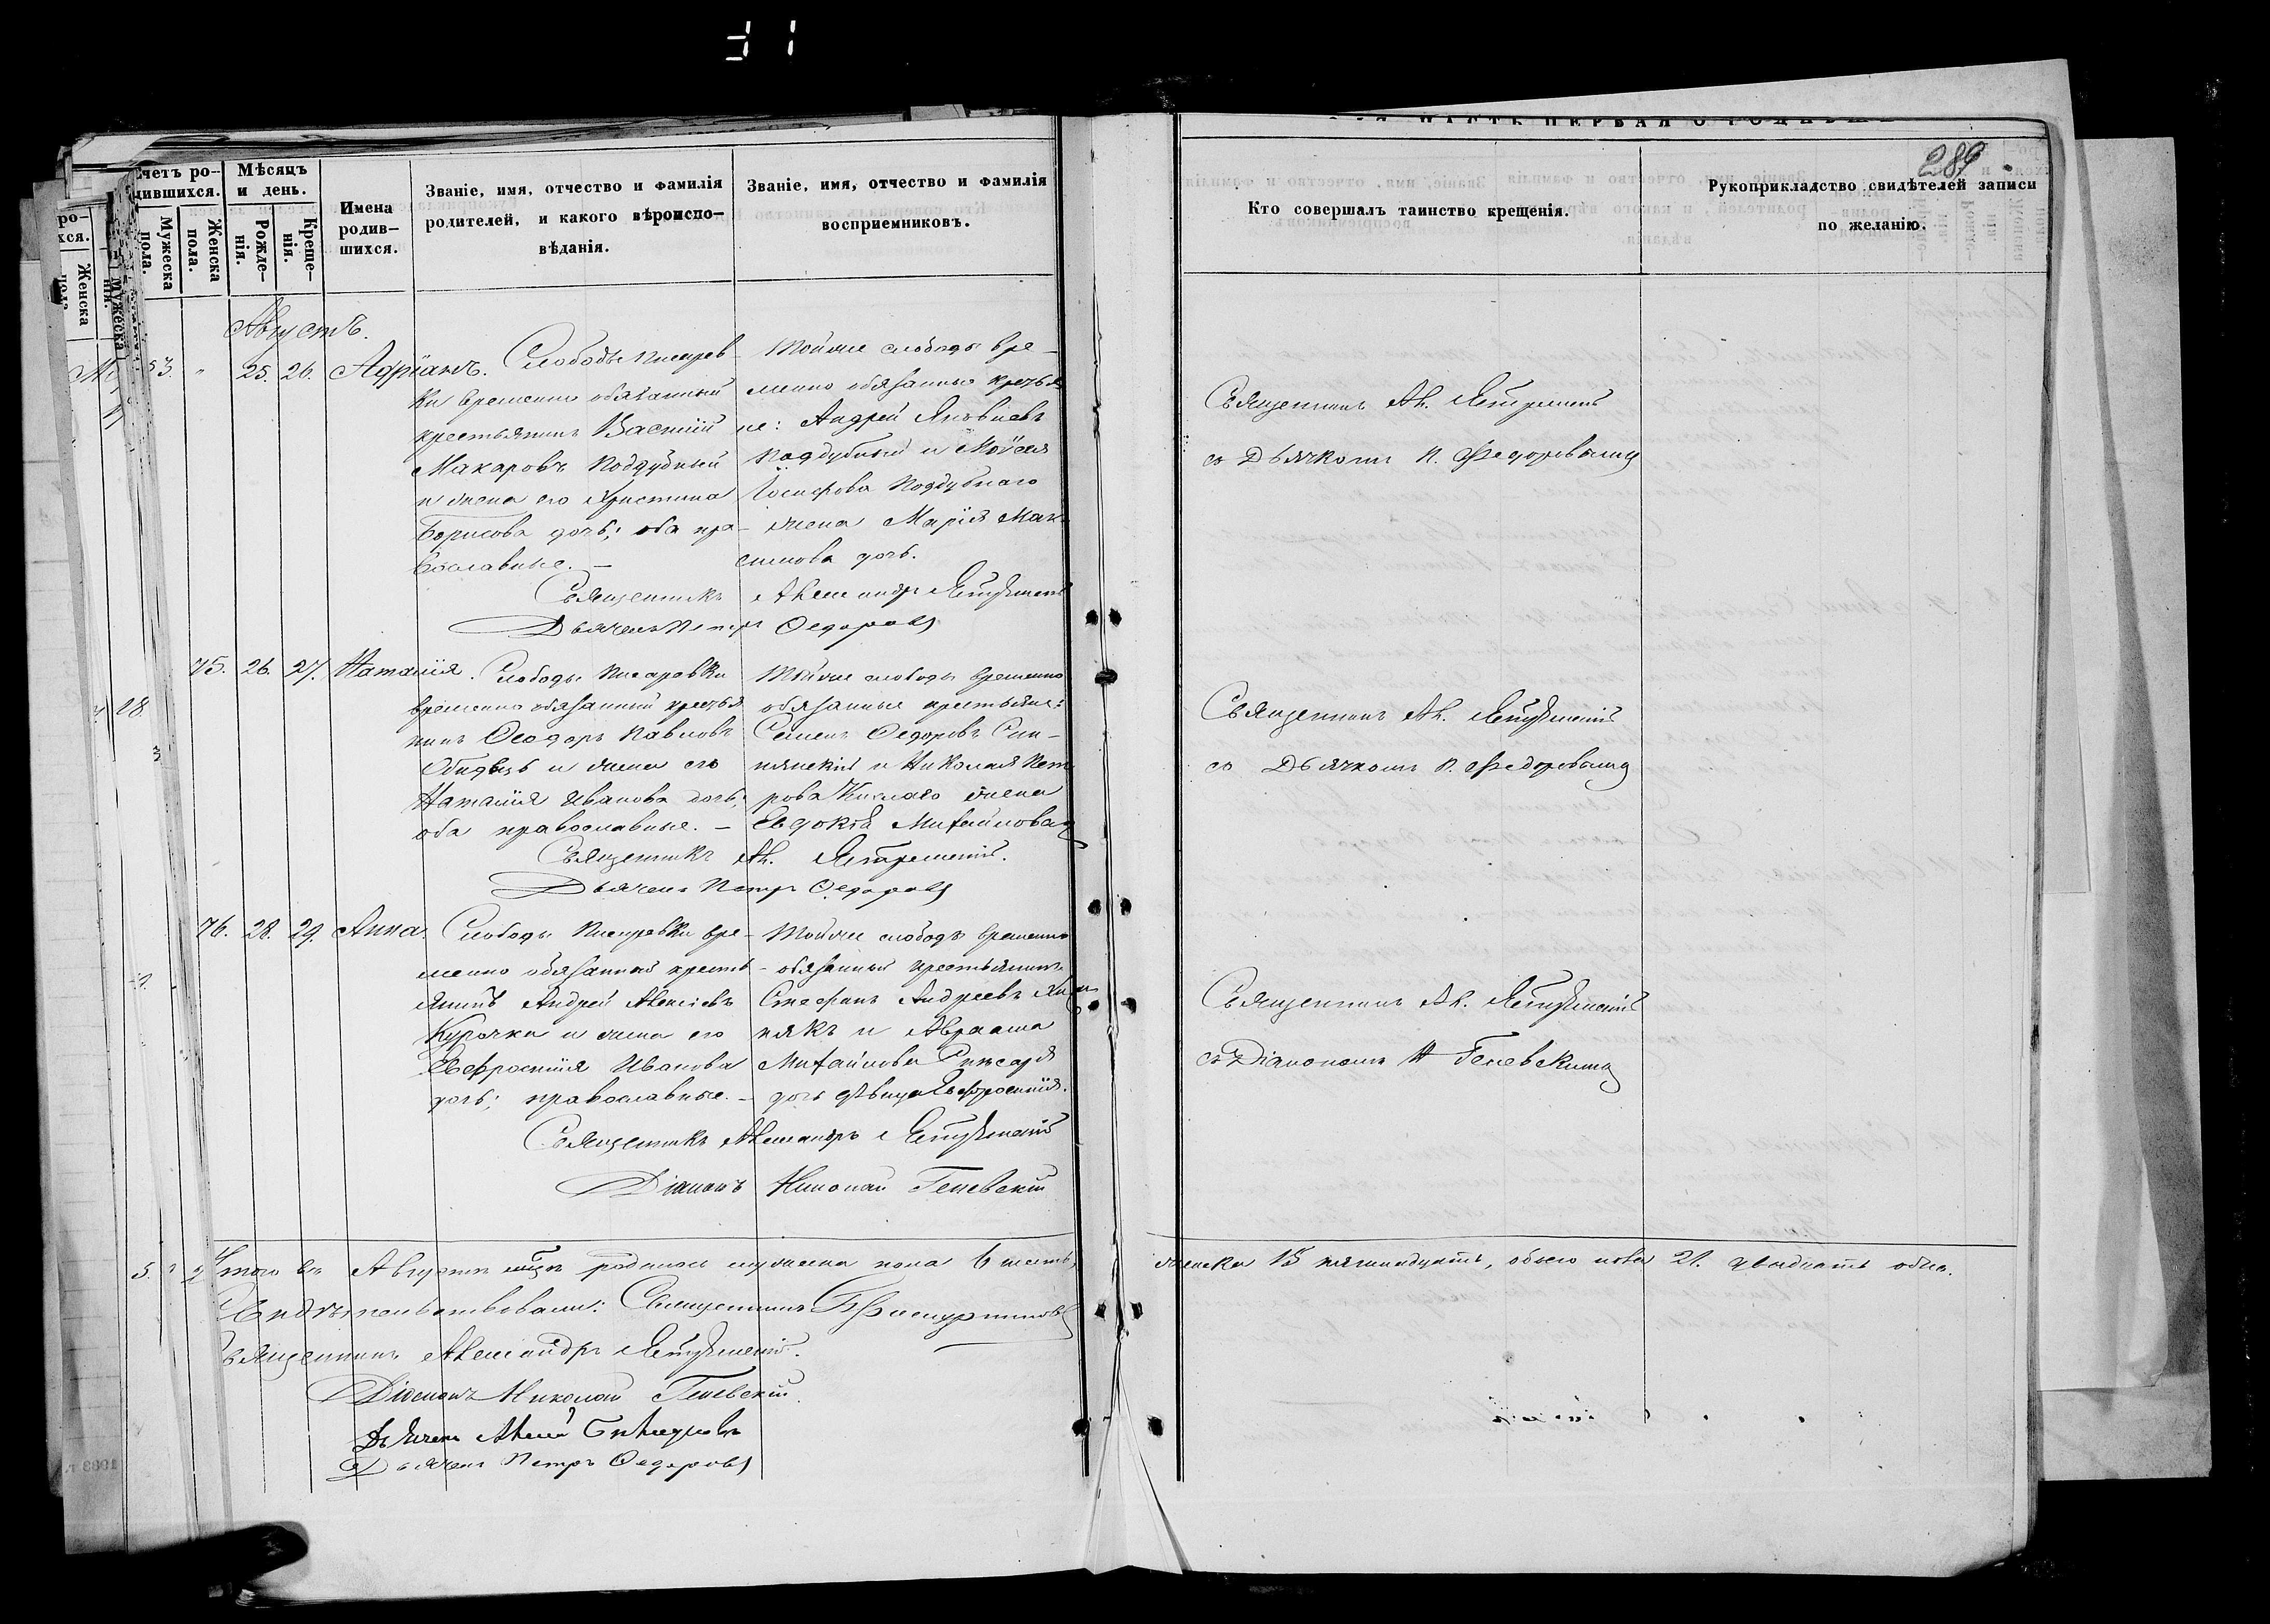 31
289
ЧАСТЬ ПЕРВАЯ О РОДИВШИ
Счетъ родившихся.
Мѣсяцъ и день.
Мужеска пола.
Женска пола.
Рожденія.
Крещенія.
Имена родившихся.
Званіе, имя, отчество и фамилія
родителей, и какого вѣроиспо-
вѣданія.
Званіе, имя, отчество и фамилія
восприемниковъ.
Кто совершалъ таинство крещенія.
Рукоприкладство свидѣтелей записи
по желанію.
Августъ.
53. " 25. 26. Адріанъ.
Слободы Писарев-
ки временно обязанный
крестьянинъ Василій
Макаровъ Поддубный
и жена его Христина
Борисова дочь; оба пра-
вославные. —
Тойже слободы вре-
менно обязанные крестья
не: Андрей Яковлевъ
Поддубный и Моисея
Іосифова Поддубнаго
жена Марія Мак-
симова дочь.
Священникъ Александръ
Дьячекъ Петръ Федоровъ
Священникъ Ал.
съ Дьячкомъ П. Федоровымъ
75. 26. 27. Наталія.
Слободы Писаревки
временно обязанный крестья
нинъ Феодоръ Павловъ
и жена его
Наталія Иванова дочь;
оба православные. —
Тойже слободы временно
обязанные крестьяне:
Семенъ Федоровъ
и Николая Пет
рова жена
Евдокія Михайлова
Священникъ Ал.
Дьячекъ Петръ Федоровъ
Священникъ Ал.
съ Дьячкомъ П. Федоровымъ
76. 28. 29. Анна.
Слободы Писаревки вре-
менно обязанный кресть-
янинъ Андрей Алексіевъ
Курочка и жена его
Евфросинія Иванова
дочь; православные. —
Тойже слободы временно
обязанный крестьянинъ
Стефанъ Андреевъ
и Авраама
Михайлова
дочь дѣвица Евфросинія.
Священникъ Александръ
Діаконъ Николай Геневскій
Священникъ Ал.
съ Діакономъ Н Геневскимъ
Итого въ Августѣ мцѣ родилось мужеска пола 6 шесть, женска 15 пятнадцать, обоего пола 21. двадцать одно.
Свидѣтельствовали: Священникъ
Священникъ Александръ
Діаконъ Николай Геневскій
Дьячекъ
Дьячекъ Петръ Федоровъ